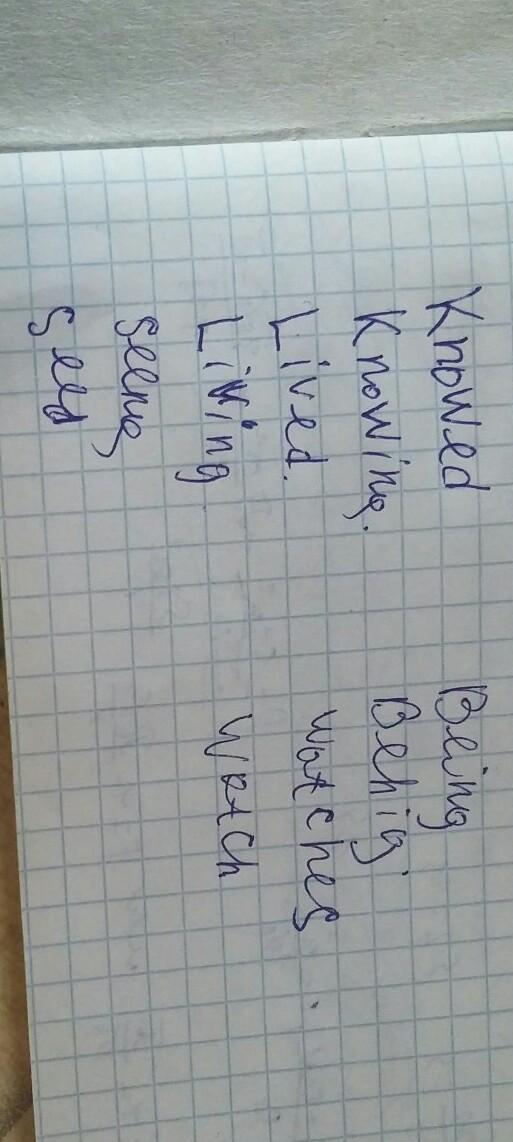 Knowed
Knowing.
Lived.
Living
Seeing
Seed
Being
Behig.
Watches
Watch